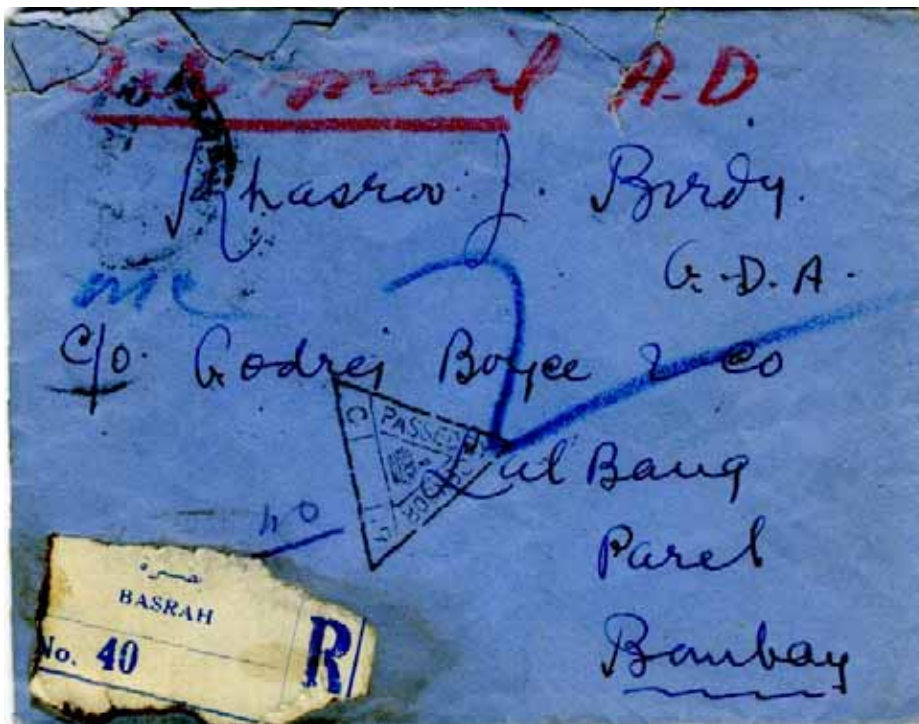 Air mail A-D
Khasroo J. Birdy.
G.D.A.
c/o. Godrej Boyce & Co
PASSED
Lal Baug
40
Parel
Bombay
BASRAH
No. 40
R